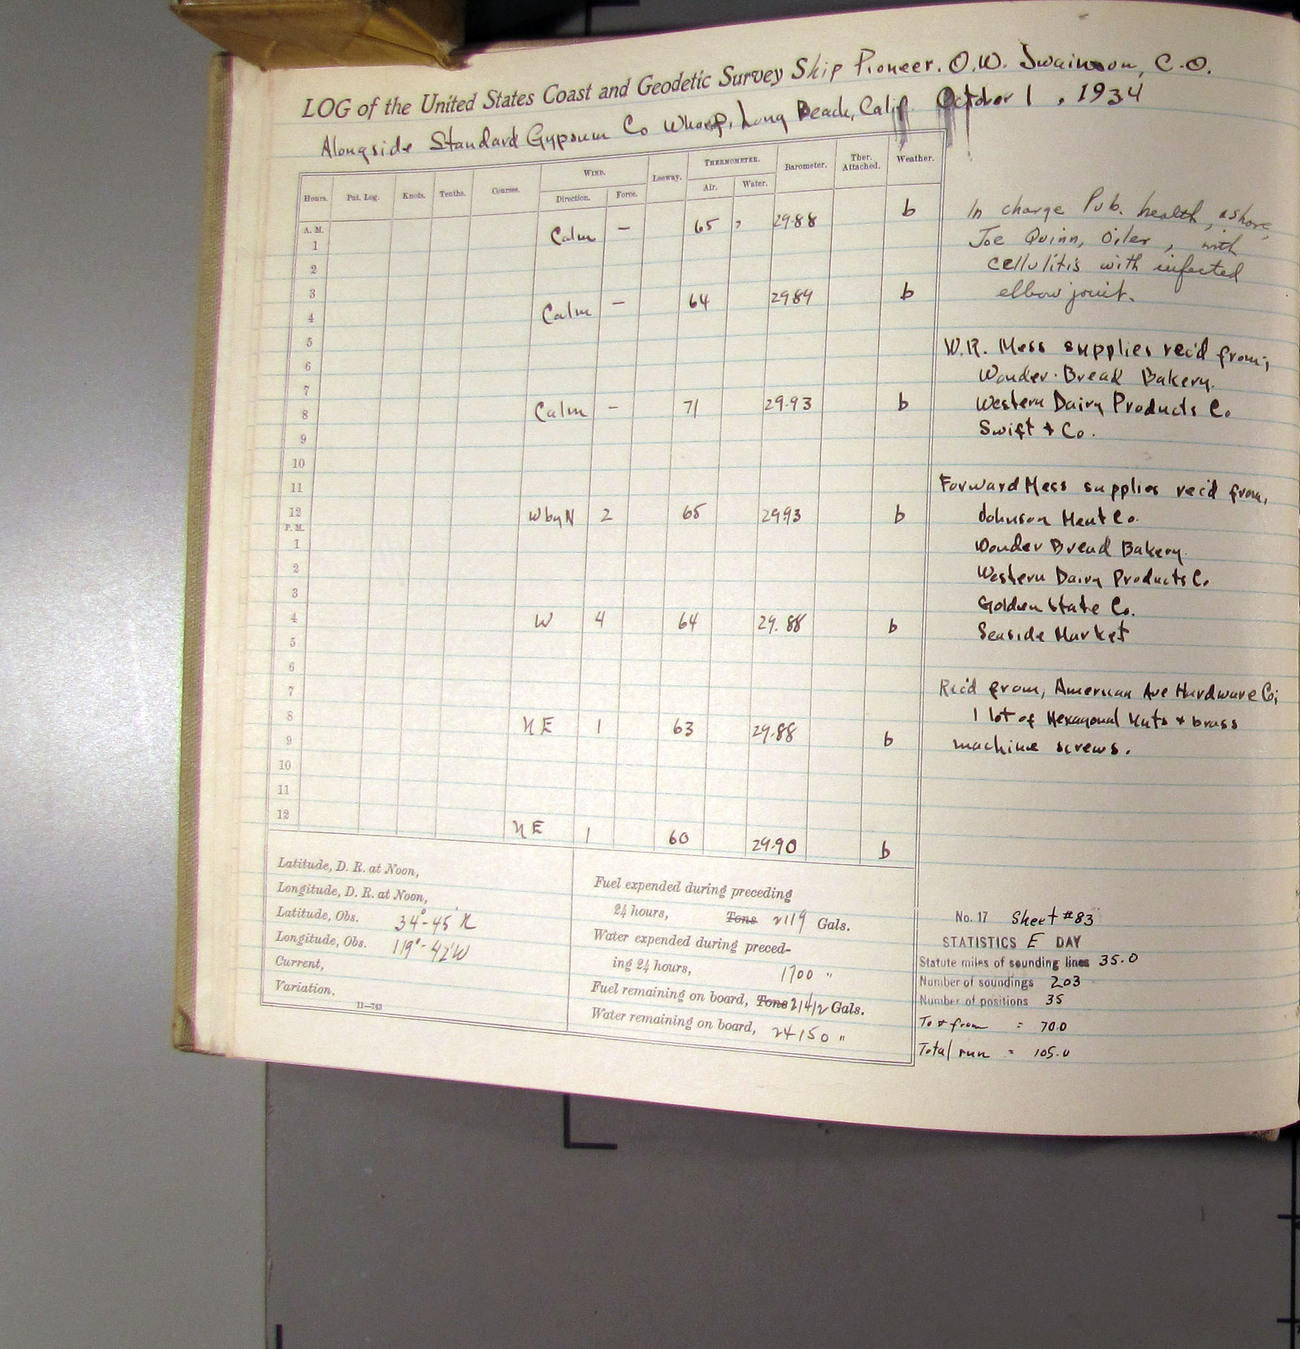 LOG of the United States Coast and Geodetic Survey Ship Pioneer. O.W. Swainson, C.O.
Alongside Standard Gypsum Co Wharf, Long Beach, Calif. October 1, 1934
Hours. Pat. Log. Knots. Tenths. Courses. WIND. Leeway. THERMOMETER. Barometer. Ther. Attached. Weather.
Direction. Force. Air. Water.
A. M.
1 Calm — 65 29.88 b
2
3
4 Calm — 64 29.89 b
5
6
7
8 Calm — 71 29.93 b
9
10
11
12 W by N 2 65 29.93 b
P. M.
1
2
3
4 W 4 64 29.88 b
5
6
7
8 NE 1 63 29.88 b
9
10
11
12 NE 1 60 29.90 b
In charge Pub. health, ashore,
Joe Quinn, Oiler, with
cellulitis with infected
elbow joint.
W.R. Mess supplies rec'd from;
Wonder Bread Bakery.
Western Dairy Products Co
Swift + Co.
Forward Mess supplies rec'd from,
Johnson Meat Co.
Wonder Bread Bakery
Western Dairy Products Co
Golden State Co.
Seaside Market
Rec'd from, American Ave Hardware Co;
1 lot of Hexagonal Nuts + brass
machine screws.
Latitude, D. R. at Noon,
Longitude, D. R. at Noon,
Latitude, Obs. 34°-45' N
Longitude, Obs. 119°-42' W
Current,
Variation.
11—763
Fuel expended during preceding
24 hours, Tons 2119 Gals.
Water expended during preced-
ing 24 hours, 1700 "
Fuel remaining on board, Tons Gals.
Water remaining on board, 24150 "
No. 17 Sheet #83
STATISTICS E DAY
Statute miles of sounding lines 35.0
Number of soundings 203
Number of positions 35
To + from = 70.0
Total run = 105.0